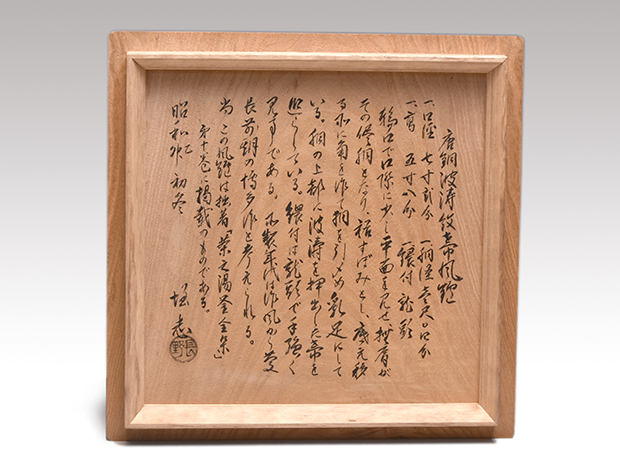 唐銅波涛紋帯風爐
一、口径 七寸弐分 一、胴径 壱尺〇
一、高 五寸八分 一、鐶付 龍頭
口で口際に少し平面を見せ撫肩が
その侭胴となり、裾すぼみとし、底
る所に角を作て胴を引〆め乳足にして
いる。胴の上部に波涛を押出した帯を
廻らしている。鐶付は龍頭で手強く
見事である。製年代は作風から慶
長前頃の博多作と考えられる。
尚 この風爐は拙著「茶之湯釜全集」
第十巻に掲載のものである。
昭和乙卯 初冬
垤志
長野